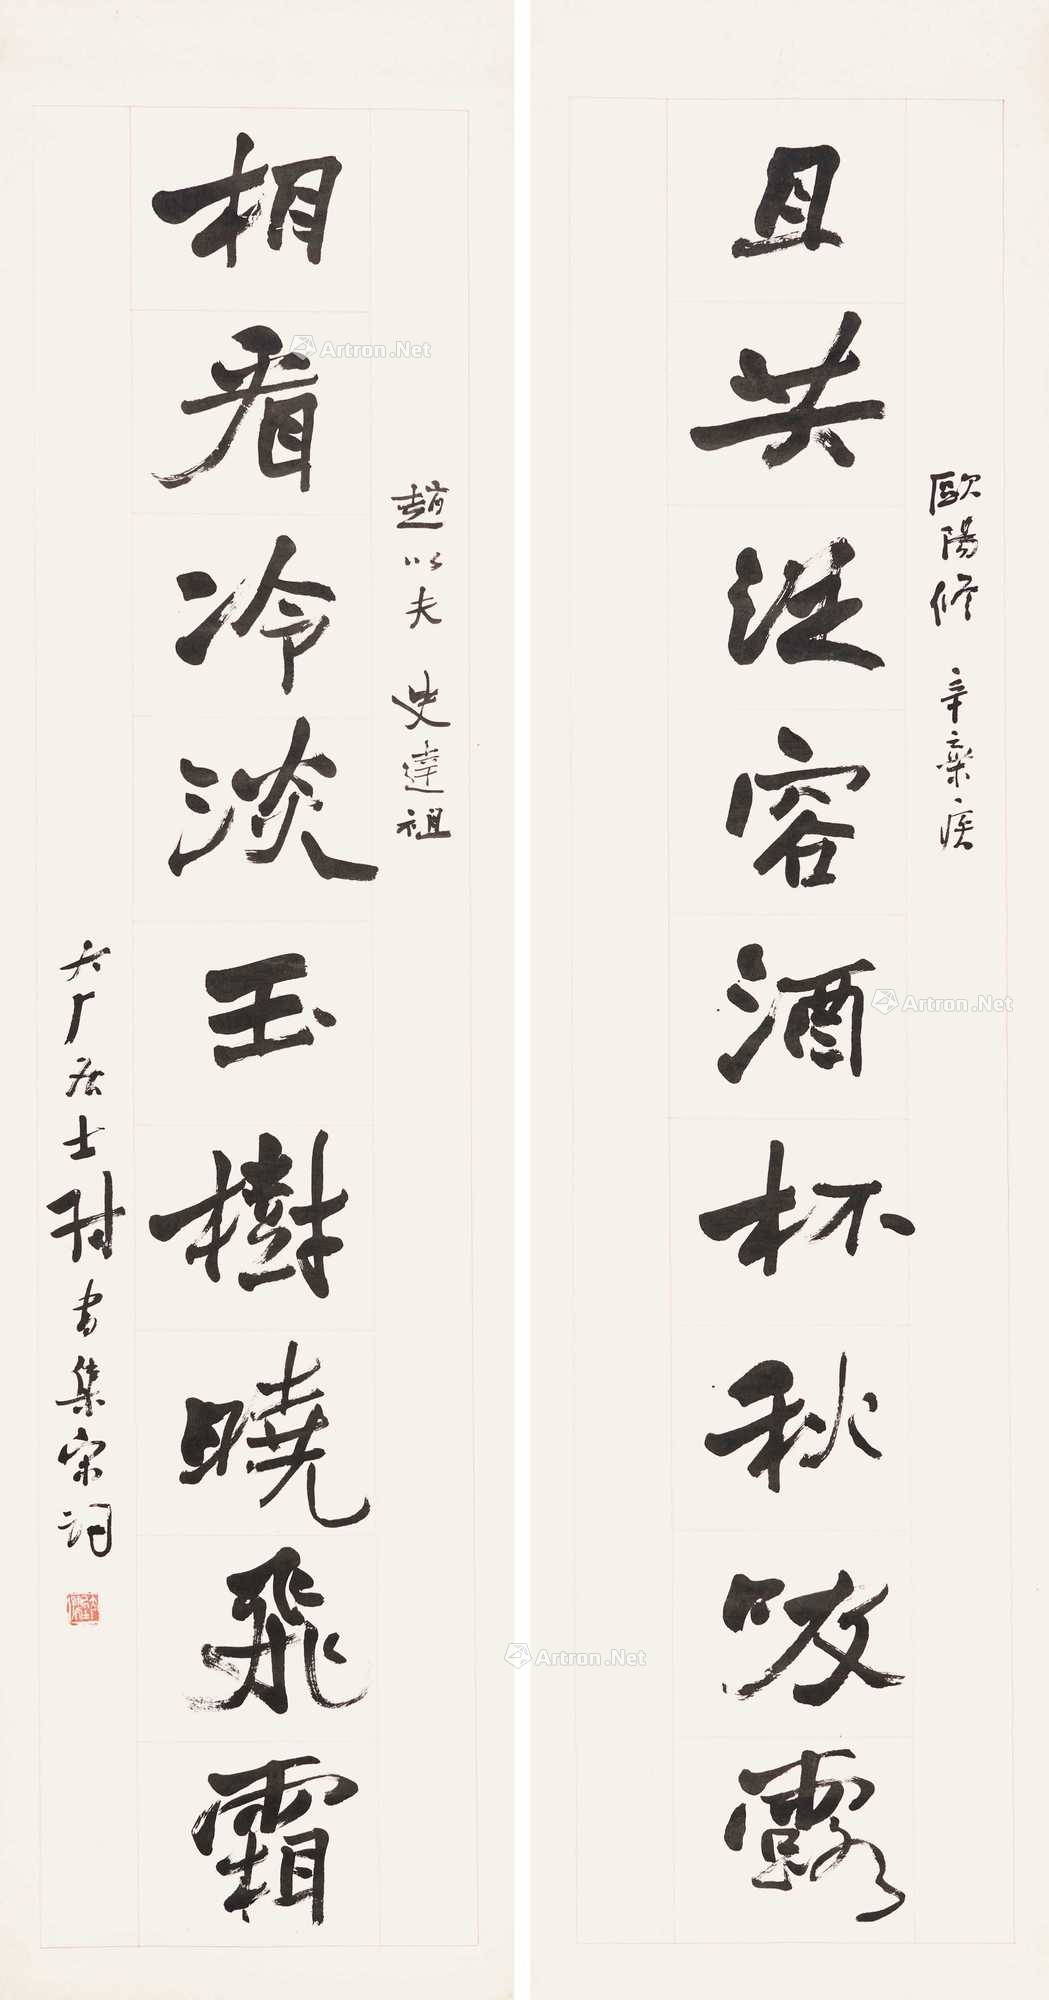 且共從容酒杯秋吸露
歐陽修 辛棄疾
相看冷淡玉樹曉飛霜
趙以夫 史達祖
大厂居士書集宋詞
Artron.Net
Artron.Net
Artron.Net